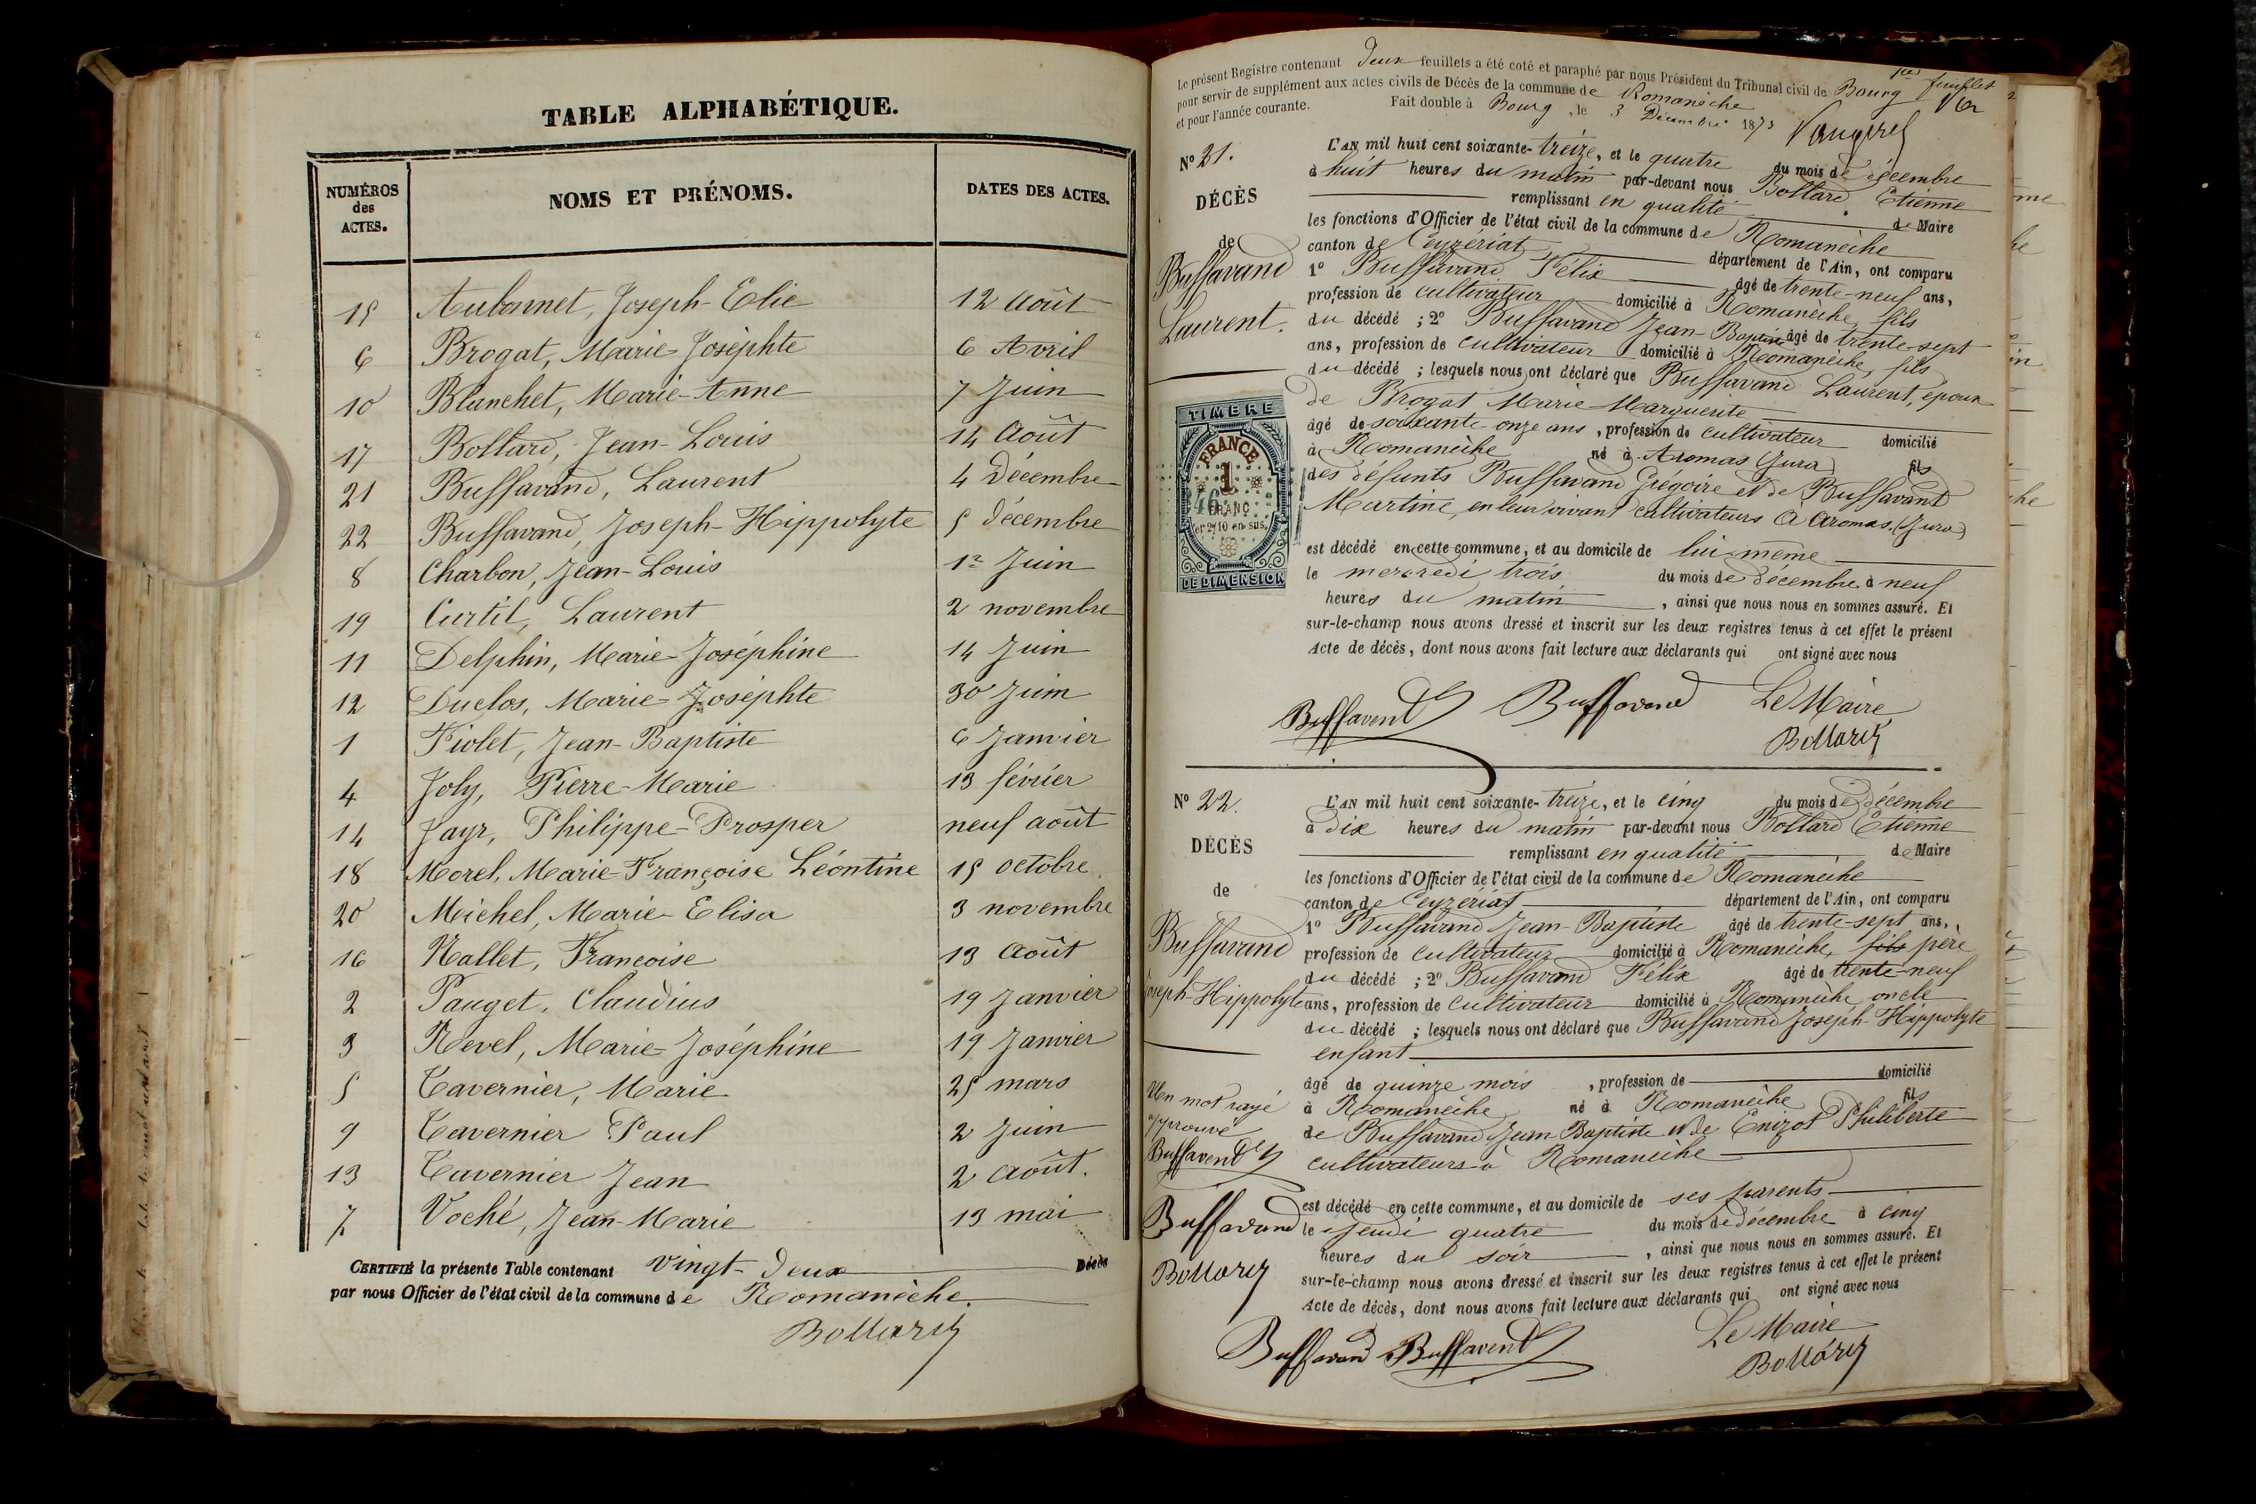 TABLE ALPHABÉTIQUE.
NUMÉROS des ACTES. NOMS ET PRÉNOMS. DATES DES ACTES.
15 Aubonnet, Joseph-Elie 12 Août
6 Brogat, Marie Josephte 6 Avril
10 Blanchet, Marie-Anne 7 Juin
17 Bollard, Jean-Louis 14 Août
21 Buffavand, Laurent 4 Décembre
22 Buffavand, Joseph-Hippolyte 5 décembre
8 Charbon, Jean-Louis 1er Juin
19 Curtil, Laurent 2 novembre
11 Delphin, Marie-Joséphine 14 Juin
12 Duclos, Marie-Joséphte 30 Juin
1 Fiolet, Jean-Baptiste 6 Janvier
4 Joly, Pierre-Marie 13 février
14 Jayr, Philippe-Prosper neuf août
18 Morel, Marie-Françoise Léontine 15 octobre
20 Michel, Marie-Elisa 3 novembre
16 Nallet, Françoise 13 Août
2 Pauget, Claudius 19 Janvier
3 Revel, Marie-Joséphine 19 Janvier
5 Tavernier, Marie 25 mars
9 Tavernier Paul 2 Juin
13 Tavernier Jean 2 Août.
7 Voché, Jean-Marie 13 mai
CERTIFIÉ la présente Table contenant vingt-deux Décès
par nous Officier de l'état civil de la commune de Romanèche.
Bollard
Le présent Registre contenant deux feuillets a été coté et paraphé par nous Président du Tribunal civil de Bourg
pour servir de supplément aux actes civils de Décès de la commune de Romanèche
et pour l'année courante. Fait double à Bourg, le 3 Décembre 1873
1er feuillet
N° 21.
DÉCÈS
de
Buffavand
Laurent.
L'AN mil huit cent soixante-treize, et le quatre du mois de décembre
à huit heures du matin par-devant nous Bollard Etienne
remplissant en qualité de Maire
les fonctions d'Officier de l'état civil de la commune de Romanèche
canton de Ceyzériat département de l'Ain, ont comparu
1° Buffavand Félix âgé de trente-neuf ans,
profession de cultivateur domicilié à Romanèche, fils
du décédé ; 2° Buffavand Jean-Baptiste âgé de trente-sept
ans, profession de cultivateur domicilié à Romanèche, fils
du décédé ; lesquels nous ont déclaré que Buffavand Laurent, époux
de Brogat Marie-Marguerite
âgé de soixante-onze ans, profession de cultivateur domicilié
à Romanèche né à Aromas (Jura) fils
des défunts Buffavand Grégoire et de Buffavand
Martine, en leur vivant cultivateurs à Aromas (Jura)
est décédé en cette commune, et au domicile de lui-même
le mercredi trois du mois de décembre à neuf
heures du matin, ainsi que nous nous en sommes assuré. Et
sur-le-champ nous avons dressé et inscrit sur les deux registres tenus à cet effet le présent
Acte de décès, dont nous avons fait lecture aux déclarants qui ont signé avec nous
TIMBRE
FRANCE
1
FRANC
2/10 en sus.
DE DIMENSION
Buffavend Buffavand Le Maire
Bollard
N° 22.
DÉCÈS
de
Buffavand
Joseph-Hippolyte
L'AN mil huit cent soixante-treize, et le cinq du mois de décembre
à dix heures du matin par-devant nous Bollard Etienne
remplissant en qualité de Maire
les fonctions d'Officier de l'état civil de la commune de Romanèche
canton de Ceyzériat département de l'Ain, ont comparu
1° Buffavand Jean-Baptiste âgé de trente-sept ans,
profession de cultivateur domicilié à Romanèche, fils père
du décédé ; 2° Buffavand Félix âgé de trente-neuf
ans, profession de cultivateur domicilié à Romanèche oncle
du décédé ; lesquels nous ont déclaré que Buffavand Joseph-Hippolyte
enfant
âgé de quinze mois, profession de domicilié
à Romanèche né à Romanèche fils
de Buffavand Jean Baptiste et de Enizot Philiberte
cultivateurs à Romanèche
est décédé en cette commune, et au domicile de ses parents
le Jeudi quatre du mois de décembre à cinq
heures du soir, ainsi que nous nous en sommes assuré. Et
sur-le-champ nous avons dressé et inscrit sur les deux registres tenus à cet effet le présent
Acte de décès, dont nous avons fait lecture aux déclarants qui ont signé avec nous
Un mot rayé
approuvé
Buffavend
Buffavand
Bollard
Buffavand Buffavend Le Maire
Bollard